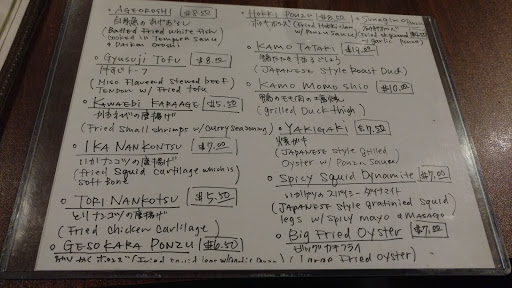 AGEOROSHI $8.50
白身魚のあげおろし
(Batted Fried white Fish
cooked in Tempura Sauce
& Daikon Oroshi
Gyusuji Tofu $8.00
(Miso Flavored stewed beef
Tendon w/ Fried tofu
KAWAEBI KARAAGE $5.50
川えびの唐揚げ
(Fried small shrimps w/ curry seasoning)
IKA NANKOTSU $7.00
いかナンコツの唐揚げ
(Fried Squid Cartilage which is
soft bone
TORI NANKOTSU $5.50
とりナンコツの唐揚げ
(Fried chicken Cartilage)
GESOKARA PONZU $6.50
HOKKI PONZU $8.50
w/ Ponzu Sauce)
KAMO TATAKI
(JAPANESE style Roast Duck)
KAMO MOMO shio $10.00
(grilled Duck thigh)
YAKIGAKI $7.50
焼がき
(JAPANESE style Grilled
Oyster w/ Ponzu Sauce)
SPICY SQUID DYNAMITE $7.00
いかゲソのスパイシーダイナマイト
(JAPANESE style gratinied squid
legs w/ spicy mayo & MASAGO
BIG FRIED OYSTER $7.00
ビッグカキフライ
(Large Fried Oyster)